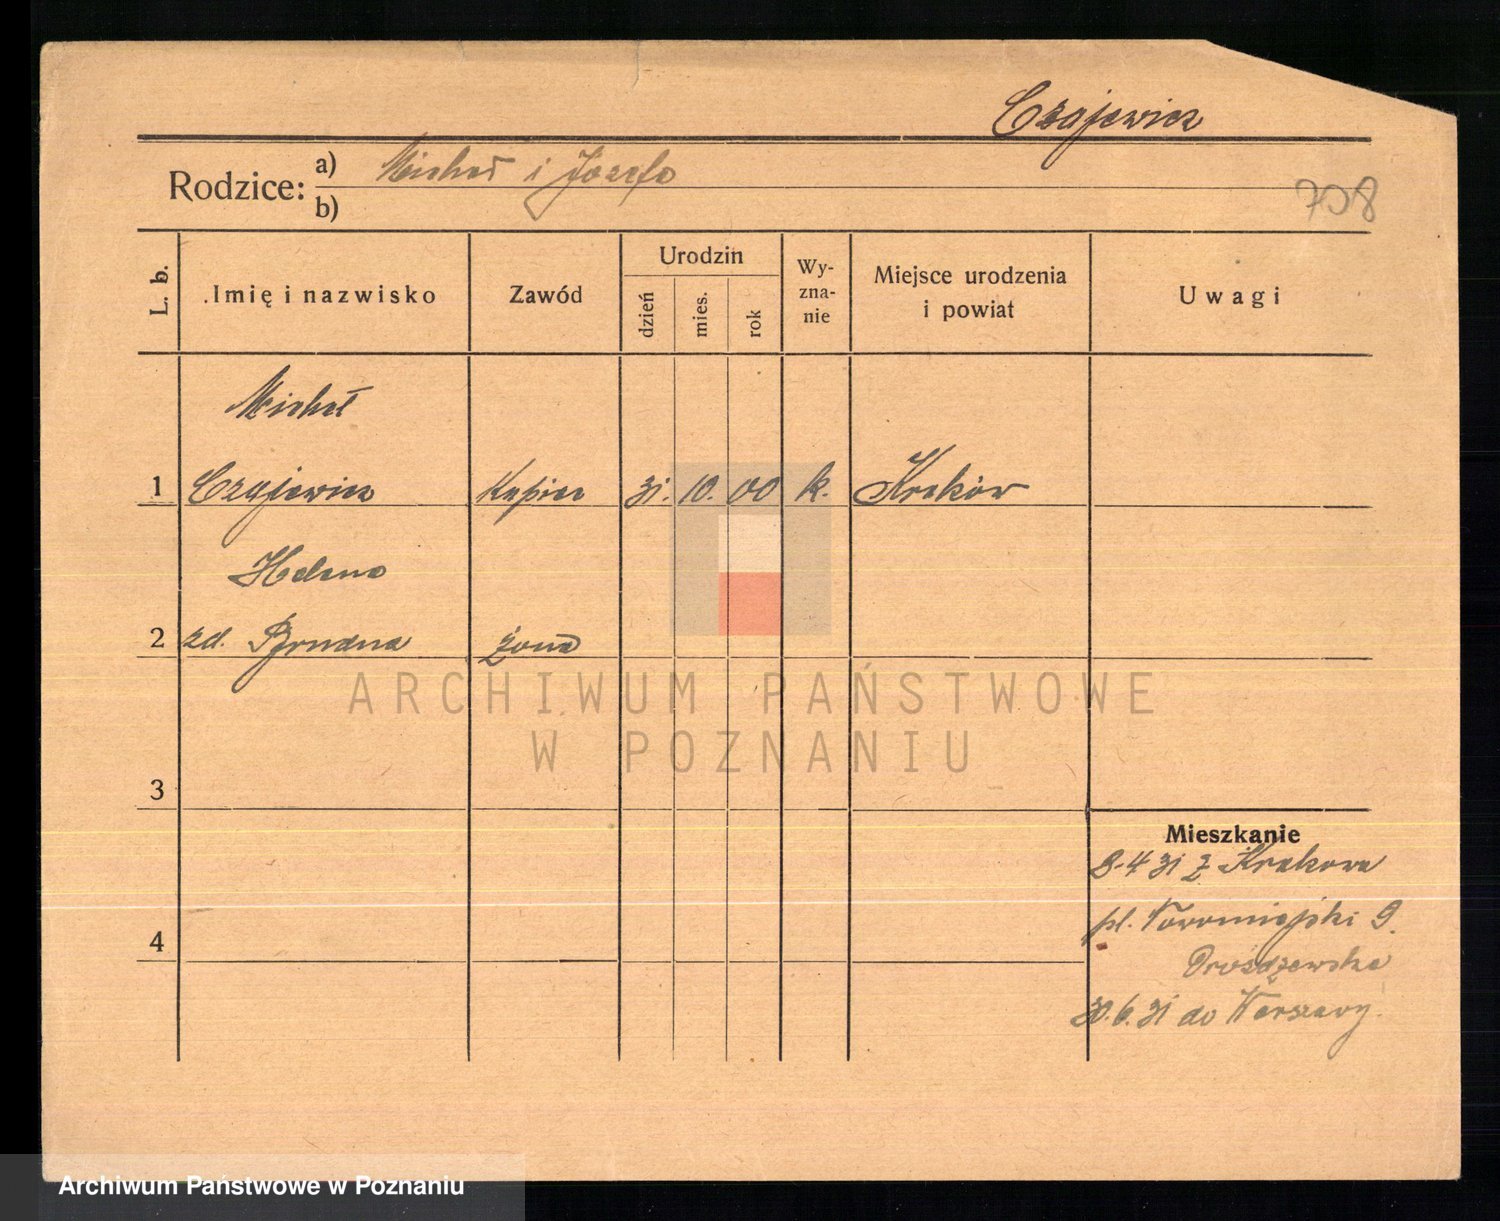 Czajewicz
Rodzice: a) Michał i Józefa
b)
708
L. b. Imię i nazwisko Zawód Urodzin dzień mies. rok Wy-zna-nie Miejsce urodzenia i powiat Uwagi
Michał
1 Czajewicz Kupiec 31. 10. 00 k. Kraków
Helena
2 zd. żona
3
Mieszkanie
8.4 31 z Krakowa
4 pl. Nowomiejski 9.
Drożdżewska
30.6.31 do Warszawy.
ARCHIWUM PAŃSTWOWE
W POZNANIU
Archiwum Państwowe w Poznaniu